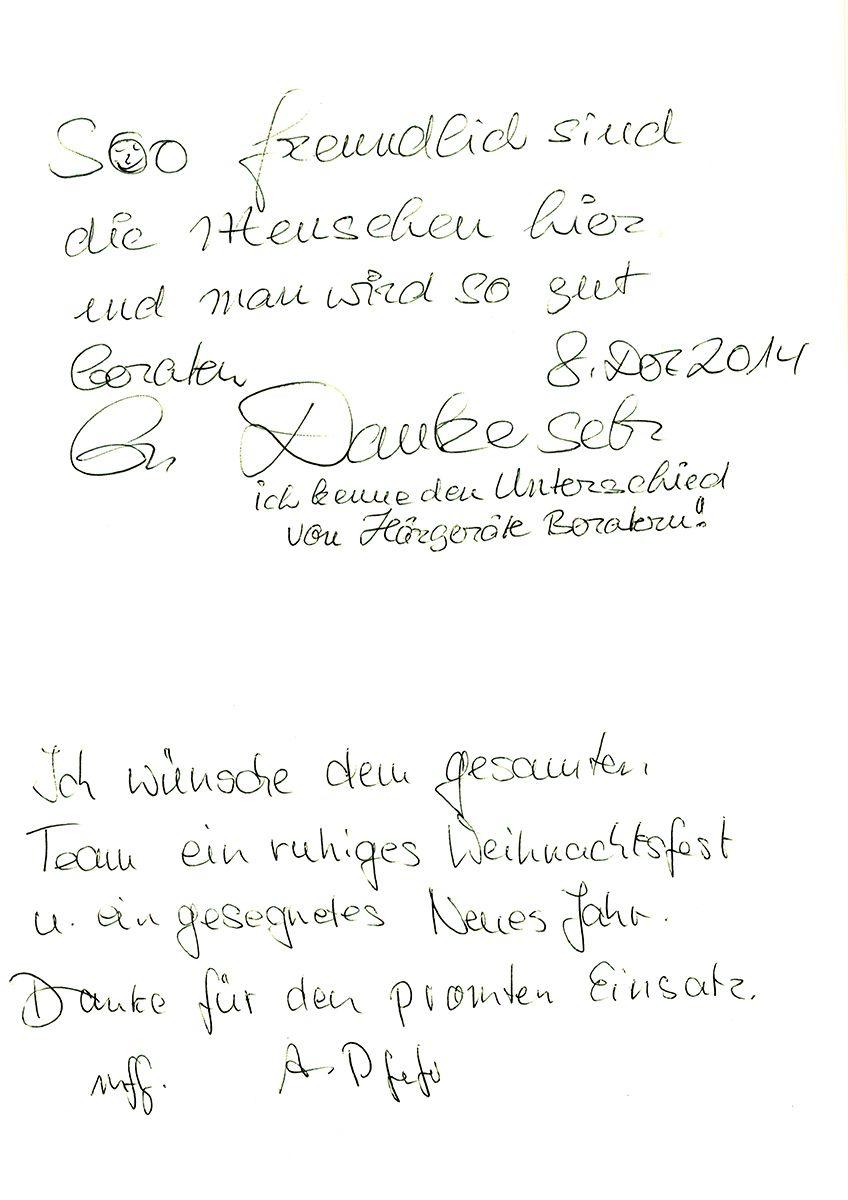 Sooo freundlich sind
die Menschen hier
und man wird so gut
beraten 8. Dez 2014
Danke sehr
ich kenne den Unterschied
von Hörgeräte Beratern!!
Ich wünsche dem gesamten
Team ein ruhiges Weihnachtsfest
u. ein gesegnetes Neues Jahr.
Danke für den promten Einsatz.
A.